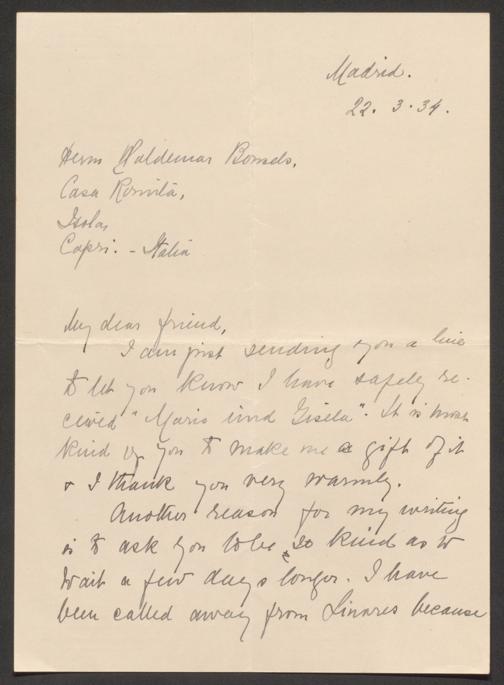 Madrid.
22. 3. 34.
Herrn Waldemar Bonsels,
Casa Romita,
Isola,
Capri. - Italia
My dear friend,
I am just sending you a line
to let you know I have safely re-
ceived "Mario und Gisela". It is most
kind of you to make me a gift of it
& I thank you very warmly.
Another reason for my writing
is to ask you to be so kind as to
wait a few days longer. I have
been called away from Linares because